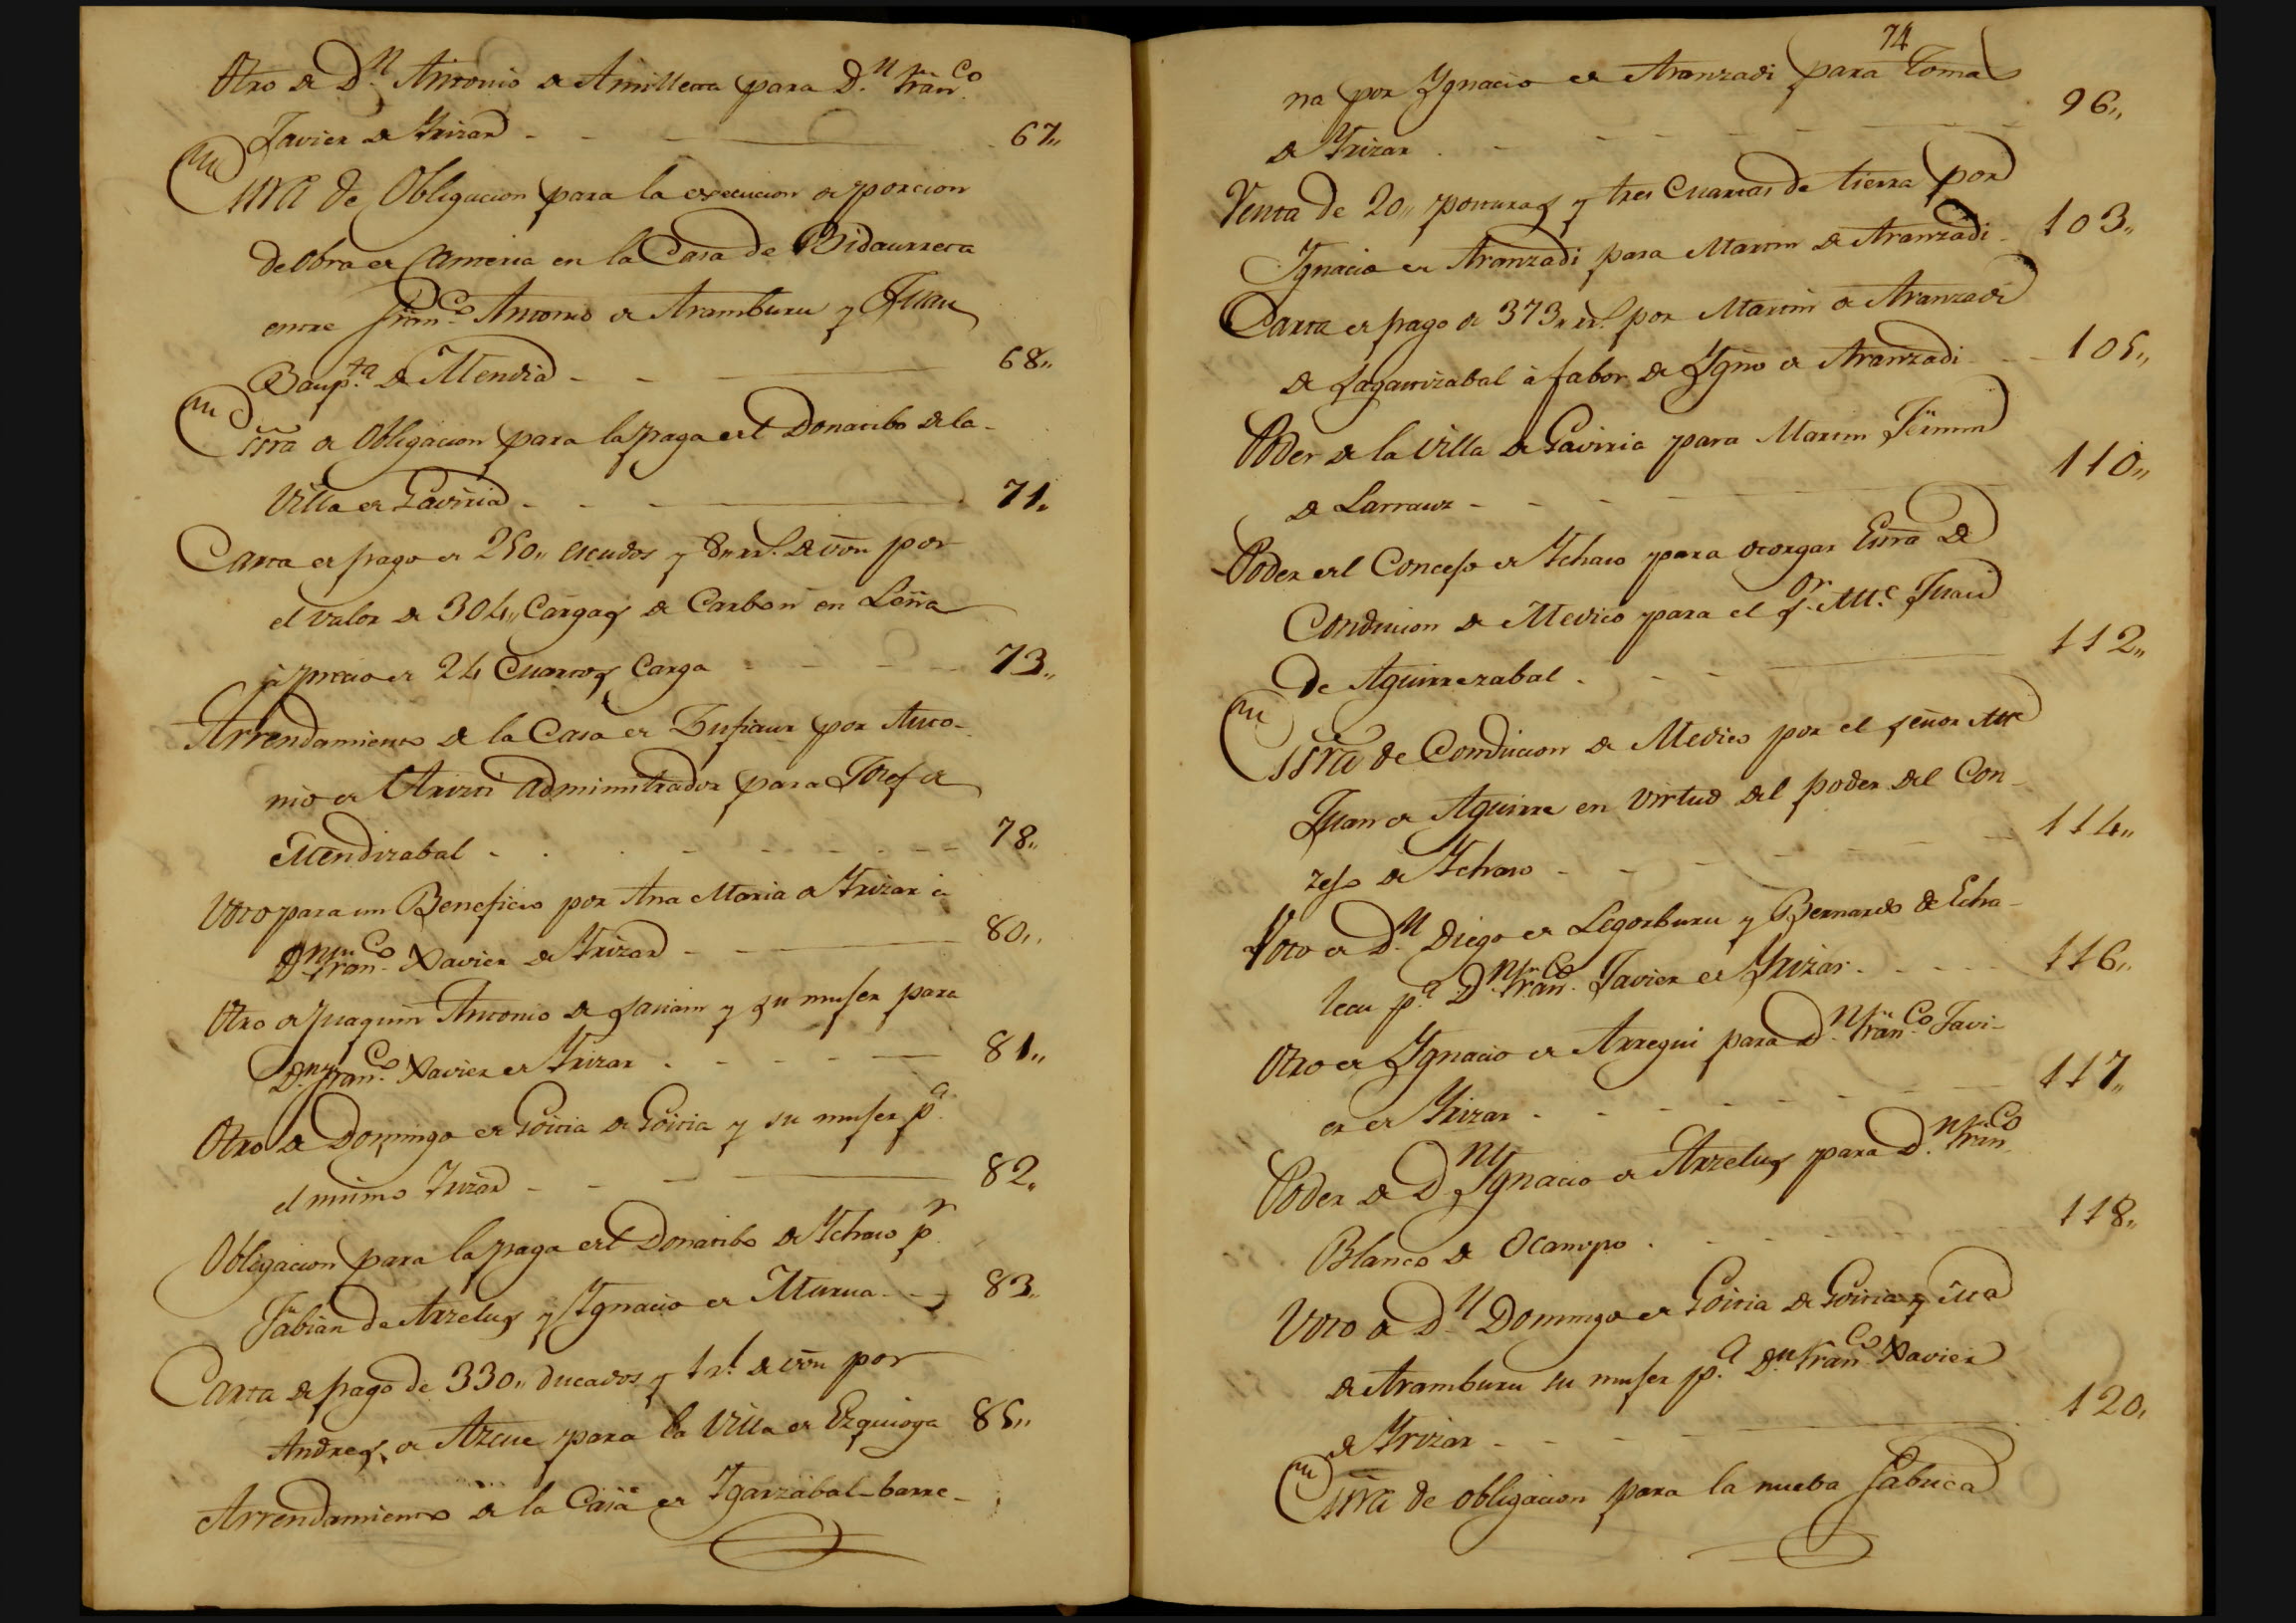 Otro de D.n Antonio de Amilleta para D.n Fran.co
Javier de Yrizar - - - 67,,
Essra de Obligacion para la execucion de porcion
de obra de Canteria en la Casa de Bidaurreta
entre Fran.co Antonio de Aramburu y Juan
Baup.ta de Mendia - - 68,,
Essra de Obligacion para la paga del Donatibo de la
Villa de Gaviria - - - 71,,
Carta de pago de 250,, escudos y 8,, rr.s de von por
el valor de 304,, Cargas de Carbon en Leña
à precio de 24 Cuartos Carga - - - 73,,
Arrendamiento de la Casa de por Anto-
nio de Arizti administrador para Josef de
Mendizabal - - - 78,,
Voto para un Beneficio por Ana Maria de Yrizar à
D.n Fran.co Xavier de Yrizar - - 80,,
Otro de Juaquin Antonio de y su muger para
D.n Fran.co Xavier de Yrizar - - - 81,,
Otro de Domingo de Goitia de Goitia y su muger p.a
el mismo Yrizar - - - 82,,
Obligacion para la paga del Donatibo de Ychaso p.r
Fabian de Arzelus y Ygnacio de Murua - - 83,,
Carta de pago de 330,, ducados y 1 r.l de von por
Andres de Azcue para la Villa de Ezquioga 85,,
Arrendamiento de la Casa de Igarzabal-barre-
74
na por Ygnacio de Aranzadi para Tomas
de Yrizar - - - 96,,
Venta de 20,, posturas y tres Cuartas de tierra por
Ygnacio de Aranzadi para Martin de Aranzadi - 103,,
Carta de pago de 373,, rr.s por Martin de Aranzadi
de Sagastizabal à fabor de Ygno de Aranzadi - - 105,,
Poder de la Villa de Gaviria para Martin Fermin
de Larraur - - - 110,,
Poder del Concejo de Ychaso para otorgar Essra de
Conducion de Medico para el S.or M.e Juan
de Aguirrezabal - - - 112,,
Essra de Conducion de Medico por el señor Me
Juan de Aguirre en virtud del poder del Con-
zejo de Ychaso - - - 114,,
Voto de D.n Diego de Legorburu y Bernardo de Echa-
lecu p.a D.n Fran.co Javier de Yrizar - - - 116,,
Otro de Ygnacio de Arregui para D.n Fran.co Javi-
er de Yrizar - - - 117,,
Poder de D.n Ygnacio de Arzelus para D.n Fran.co
Blanco de Ocampo - - - 118,,
Voto de D.n Domingo de Goitia de Goitia y
de Aramburu su muger p.a D.n Fran.co Xavier
de Yrizar - - - 120,
Essra de obligacion para la nueba fabrica